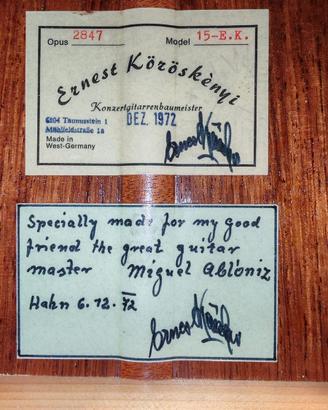 Opus 2847 Model 15-E.K.
Ernest Köröskènyi
Konzertgitarrenbaumeister
6204 Taunusstein 1
Mühlfeldstraße 1a
DEZ. 1972
Made in
West-Germany
Specially made for my good
friend the great guitar
master Miguel Ablóniz
Hahn 6.12.72